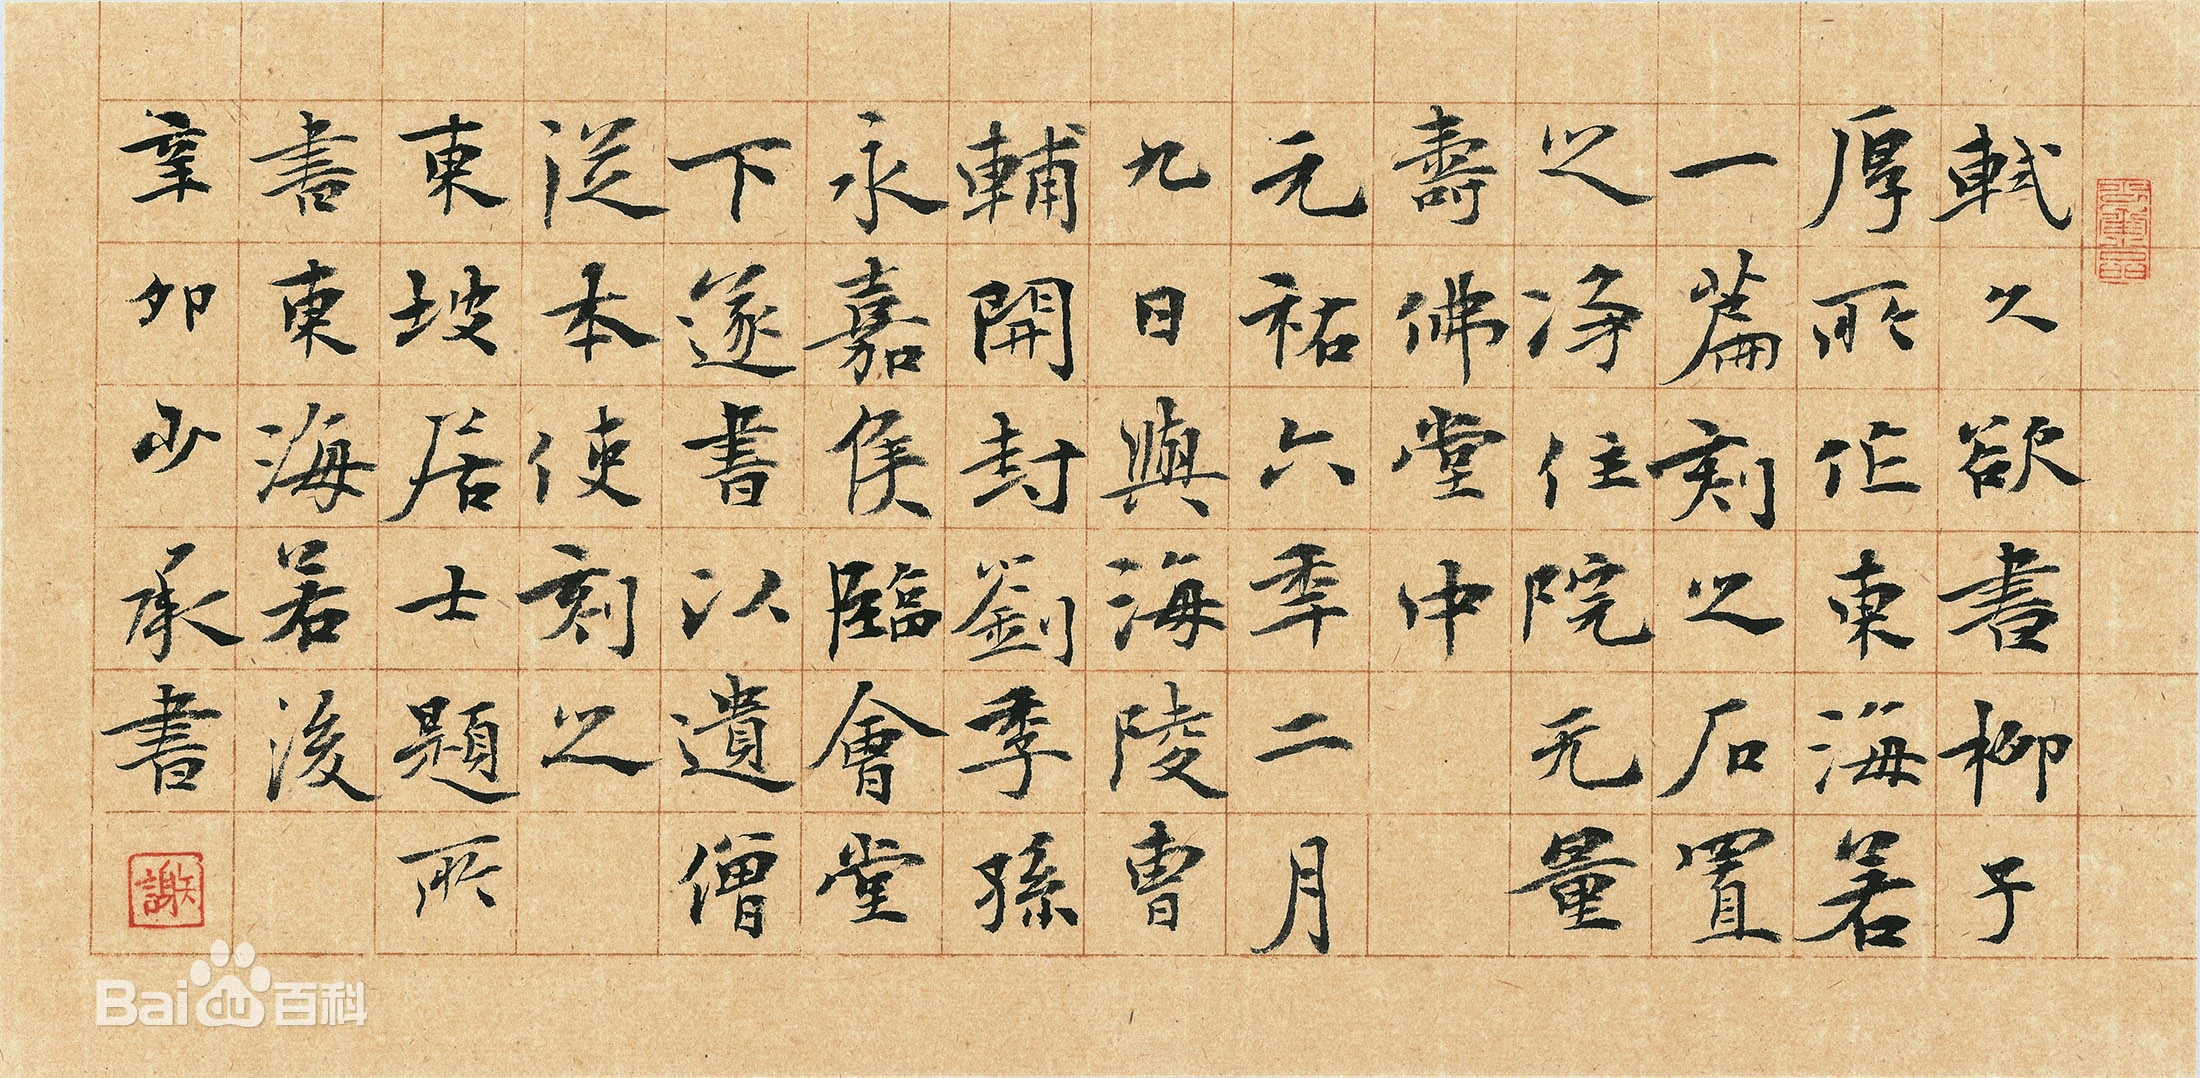 軾久欲書柳子
厚所作東海若
一篇刻之石置
之淨住院无量
壽佛堂中
元祐六季二月
九日與海陵曹
輔開封劉季孫
永嘉侯臨會堂
下遂書以遺僧
從本使刻之
東坡居士題所
書東海若後
辛卯少承書
謝
Bai百科